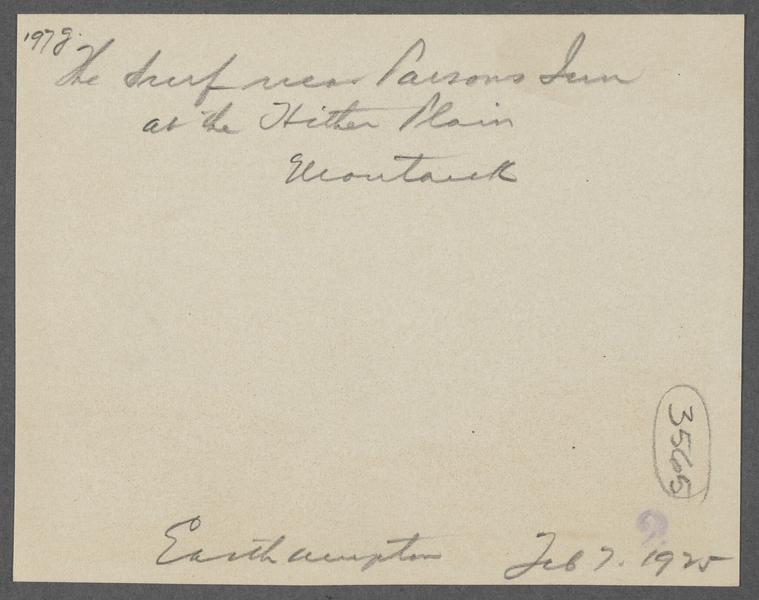 197g.
The Surf near Parsons Inn
at the Hither Plain
Montauk
3565
Easthampton Feb 7. 1925